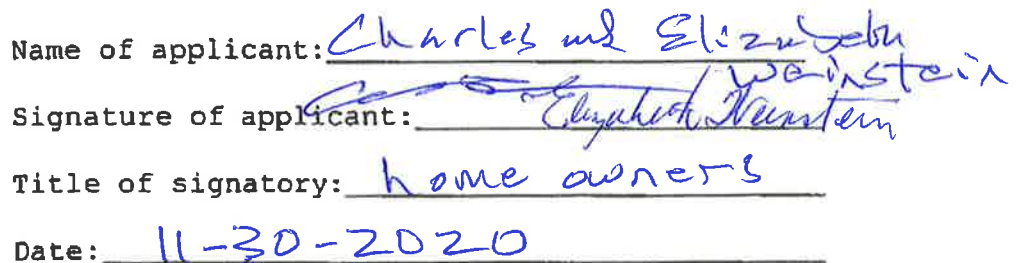 Name of applicant: Charles and Elizabeth
Weinstein
Signature of applicant: Elizabeth Weinstein
Title of signatory: home owners
Date: 11-30-2020